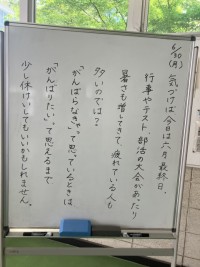 6/30(月)
気づけば今日は六月最終日。
行事やテスト、部活の大会があったり
暑さも増してきて、疲れている人も
多いのでは？
「がんばらなきゃ」って思っているときは
「がんばりたい」って思えるまで
少し休けいしてもいいかもしれません。